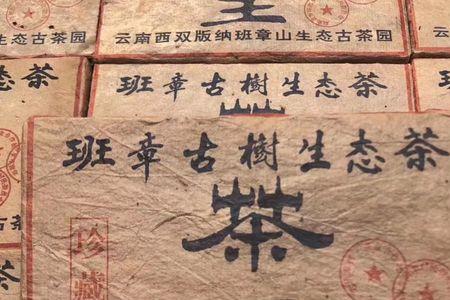 云南西双版纳班章山生态古茶园
茶
班章古樹生态茶
班章古樹生态茶
茶
珍藏